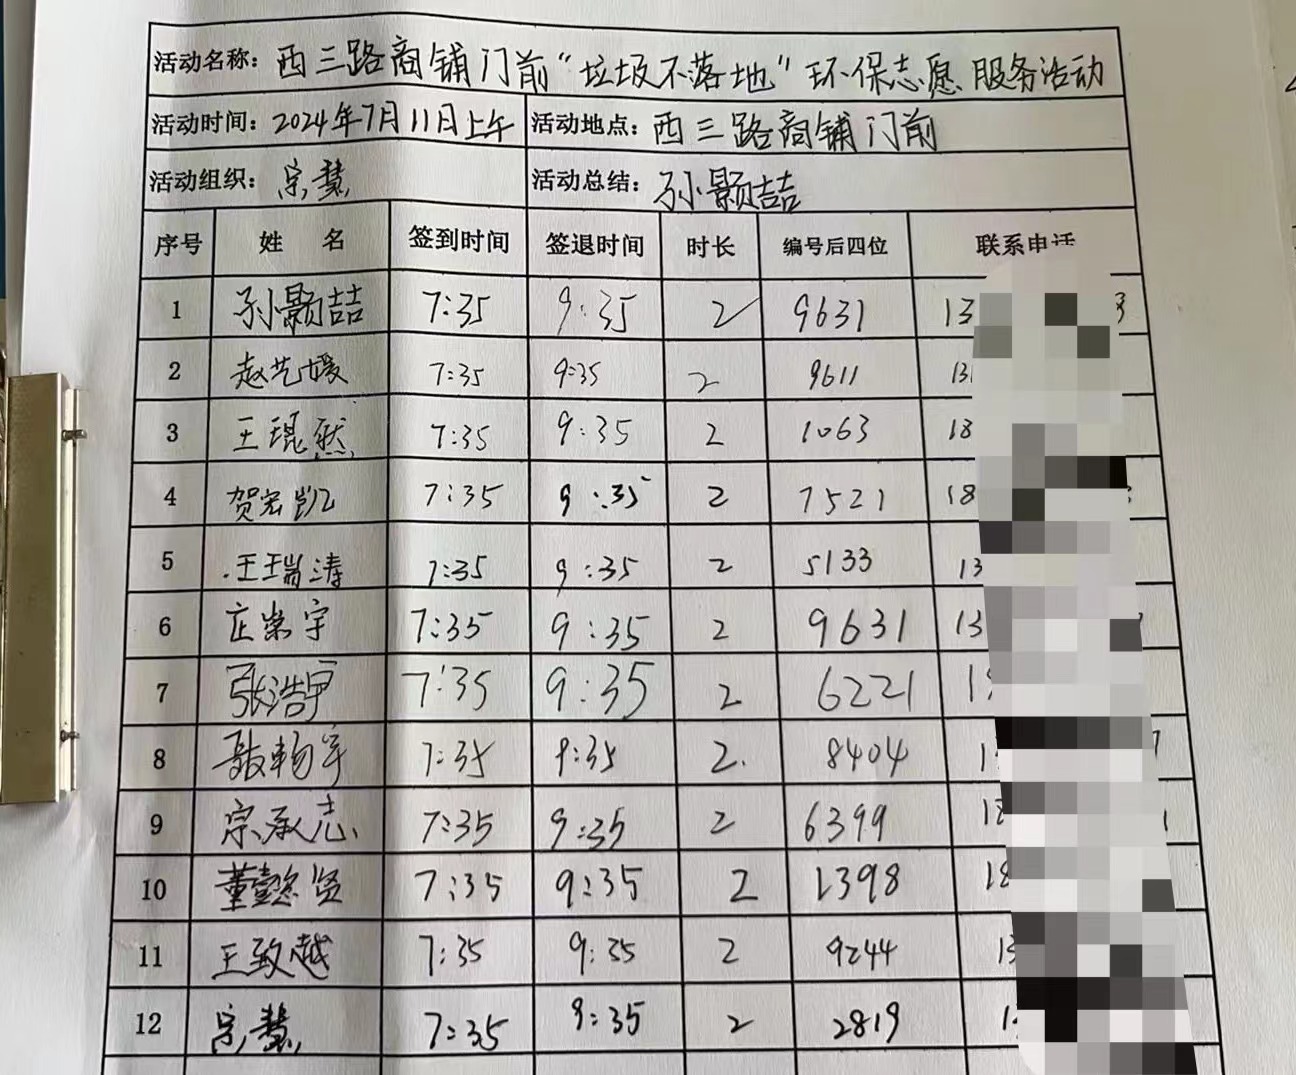 活动名称：西三路商铺门前“垃圾不落地”环保志愿服务活动
活动时间：2024年7月11日上午 活动地点：西三路商铺门前
活动组织：宗慧 活动总结：孙颢喆
序号 姓 名 签到时间 签退时间 时长 编号后四位 联系电话
1 孙颢喆 7:35 9:35 2 9631 13 3
2 赵艺媛 7:35 9:35 2 9611 13
3 王琨然 7:35 9:35 2 1063 18
4 贺宏凯 7:35 9:35 2 7521 18
5 王瑞涛 7:35 9:35 2 5133 13
6 宇 7:35 9:35 2 9631 13
7 张浩宇 7:35 9:35 2 6221 1
8 7:35 9:35 2. 8404 1
9 宗承志 7:35 9:35 2 6399 18
10 董懿贤 7:35 9:35 2 1398 18
11 王致越 7:35 9:35 2 9244 13
12 宗慧 7:35 9:35 2 2819 1